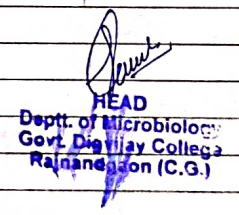 HEAD
Deptt. of Microbiology
Govt. Digvijay College
Rajnandgaon (C.G.)